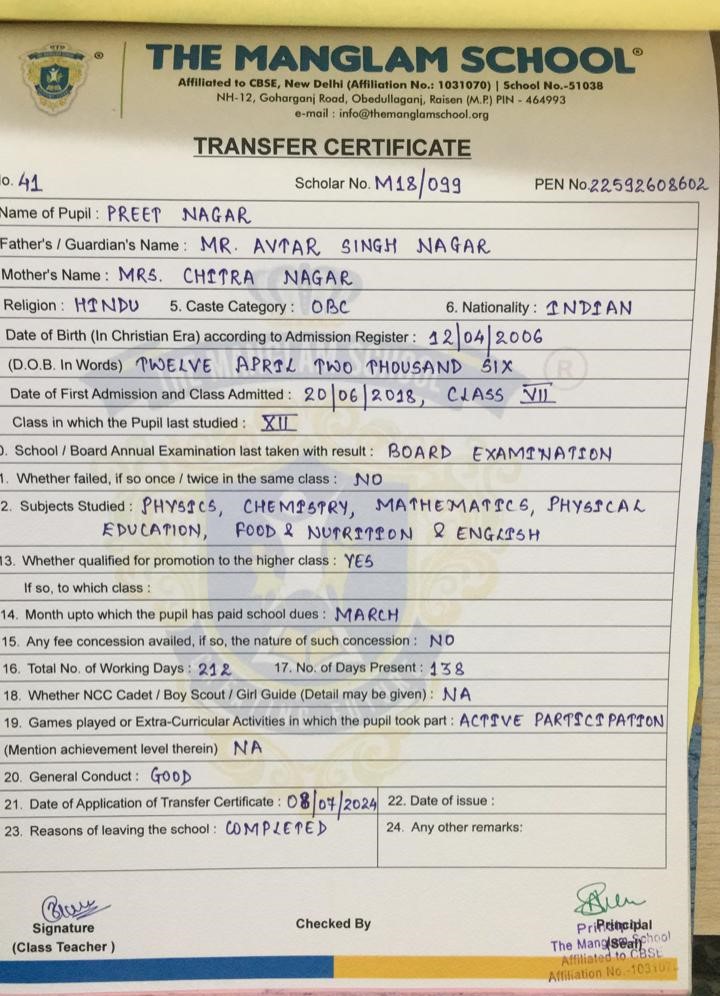 THE MANGLAM SCHOOL®
Affiliated to CBSE, New Delhi (Affiliation No.: 1031070) | School No.-51038
NH-12, Goharganj Road, Obedullaganj, Raisen (M.P.) PIN - 464993
e-mail : info@themanglamschool.org
TRANSFER CERTIFICATE
o. 41 Scholar No. M18/099 PEN No. 22592608602
Name of Pupil : PREET NAGAR
Father's / Guardian's Name : MR. AVTAR SINGH NAGAR
Mother's Name : MRS. CHITRA NAGAR
Religion : HINDU 5. Caste Category : OBC 6. Nationality : INDIAN
Date of Birth (In Christian Era) according to Admission Register : 12/04/2006
(D.O.B. In Words) TWELVE APRIL TWO THOUSAND SIX
Date of First Admission and Class Admitted : 20/06/2018, CLASS VII
Class in which the Pupil last studied : XII
0. School / Board Annual Examination last taken with result : BOARD EXAMINATION
1. Whether failed, if so once / twice in the same class : NO
2. Subjects Studied : PHYSICS, CHEMISTRY, MATHEMATICS, PHYSICAL
EDUCATION, FOOD & NUTRITION & ENGLISH
13. Whether qualified for promotion to the higher class : YES
If so, to which class :
14. Month upto which the pupil has paid school dues : MARCH
15. Any fee concession availed, if so, the nature of such concession : NO
16. Total No. of Working Days : 212 17. No. of Days Present : 138
18. Whether NCC Cadet / Boy Scout / Girl Guide (Detail may be given) : NA
19. Games played or Extra-Curricular Activities in which the pupil took part : ACTIVE PARTICIPATION
(Mention achievement level therein) NA
20. General Conduct : GOOD
21. Date of Application of Transfer Certificate : 08/07/2024 22. Date of issue :
23. Reasons of leaving the school : COMPLETED 24. Any other remarks:
Signature Checked By Principal
(Class Teacher ) (Seal)
Principal
The Manglam School
Affiliated to CBSE
Affiliation No.-103107